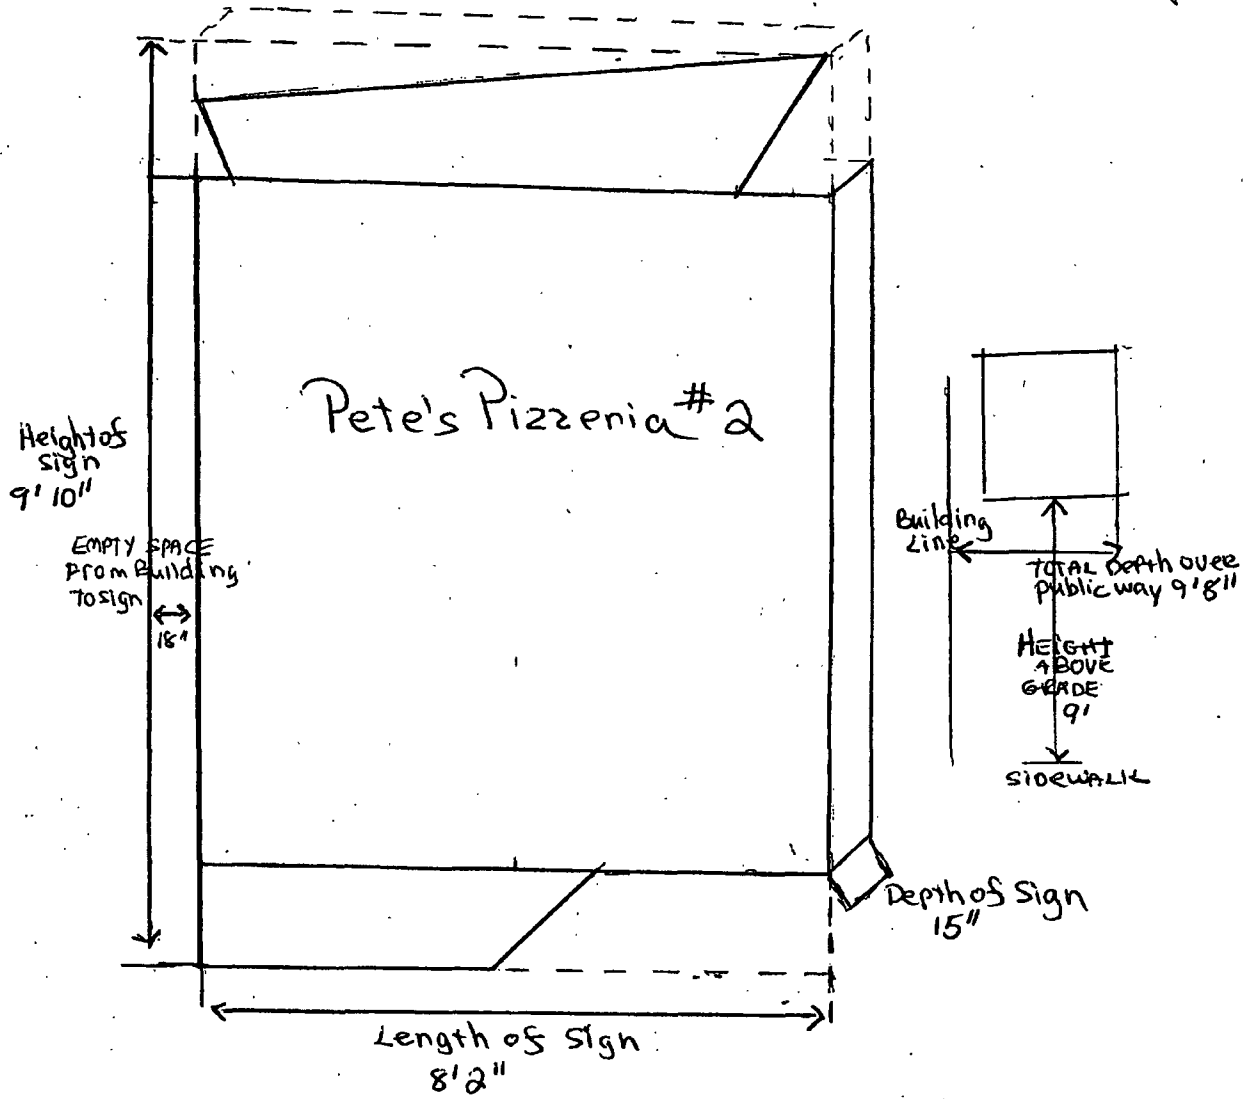 Pete's Pizzeria #2
Height of
sign
9' 10"
EMPTY SPACE
From Building
To sign
18"
Building
Line
TOTAL Depth over
public way 9'8"
HEIGHT
ABOVE
GRADE
9'
SIDEWALK
Depth of Sign
15"
Length of Sign
8'2"